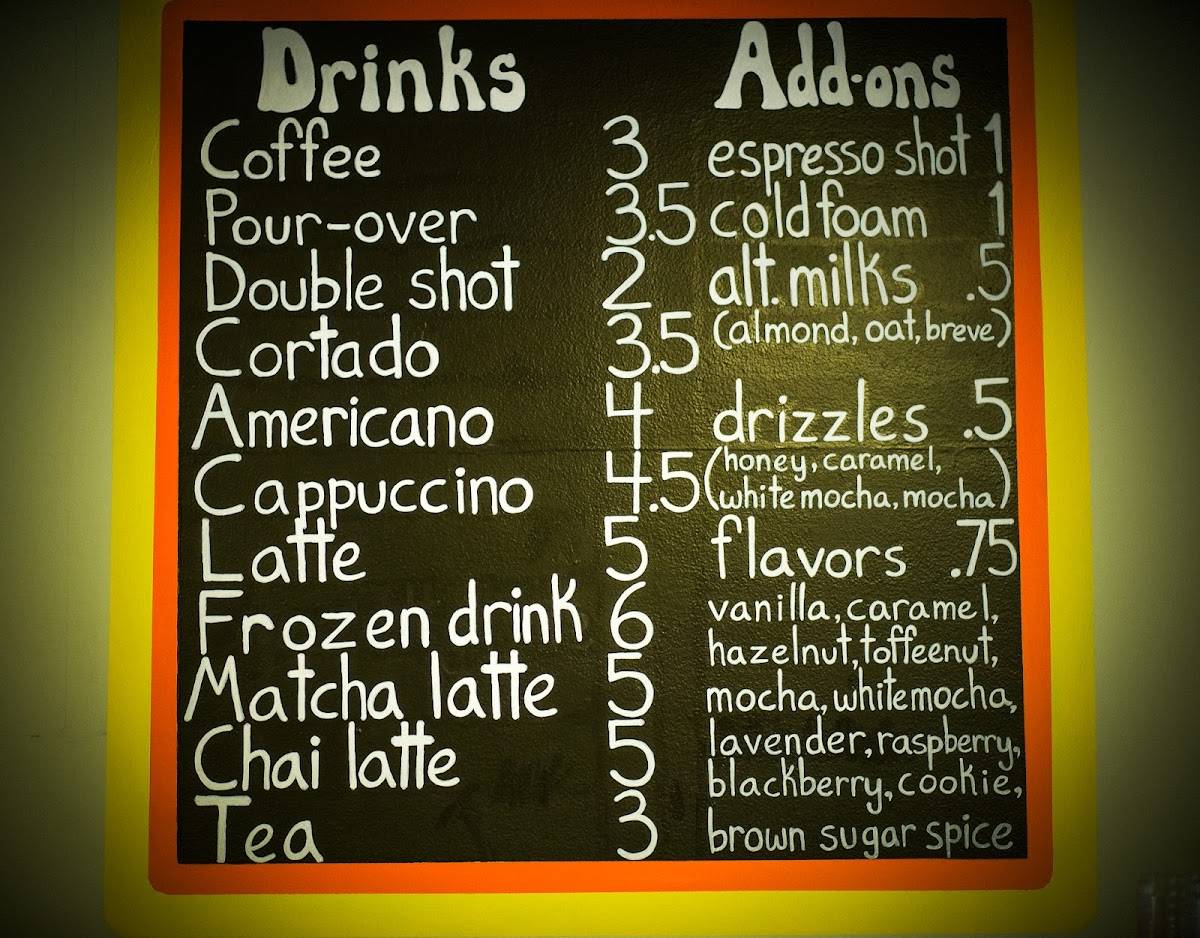 Drinks
Coffee 3
Pour-over 3.5
Double shot 2
Cortado 3.5
Americano 4
Cappuccino 4.5
Latte 5
Frozen drink 6
Matcha latte 5
Chai latte 5
Tea 3
Add-ons
espresso shot 1
cold foam 1
alt. milks .5
(almond, oat, breve)
drizzles .5
(honey, caramel,
white mocha, mocha)
flavors .75
vanilla, caramel,
hazelnut, toffeenut,
mocha, white mocha,
lavender, raspberry,
blackberry, cookie,
brown sugar spice